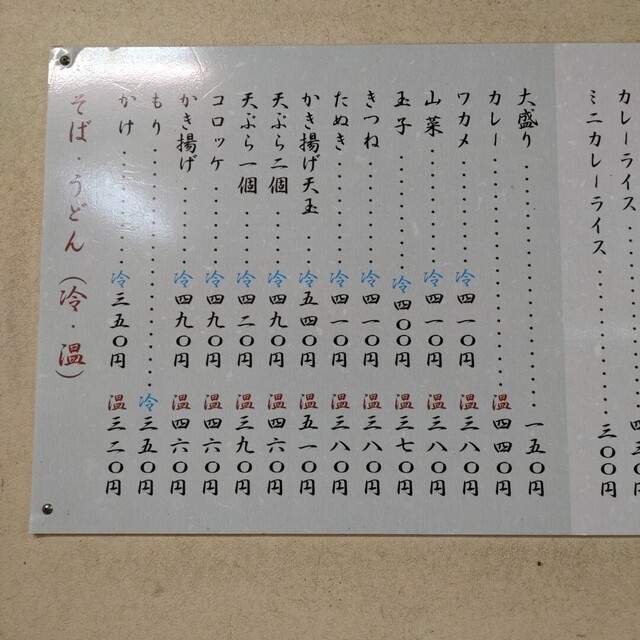 そば・うどん(冷・温)
かけ 冷三五〇円 温三二〇円
もり 冷三五〇円
かき揚げ 冷四九〇円 温四六〇円
コロッケ 冷四九〇円 温四六〇円
天ぷら一個 冷四二〇円 温三九〇円
天ぷら二個 冷四九〇円 温四六〇円
かき揚げ天玉 冷五四〇円 温五一〇円
たぬき 冷四一〇円 温三八〇円
きつね 冷四一〇円 温三八〇円
玉子 冷四〇〇円 温三七〇円
山菜 冷四一〇円 温三八〇円
ワカメ 冷四一〇円 温三八〇円
カレー 温四四〇円
大盛り 一五〇円
ミニカレーライス 三〇〇円
カレーライス